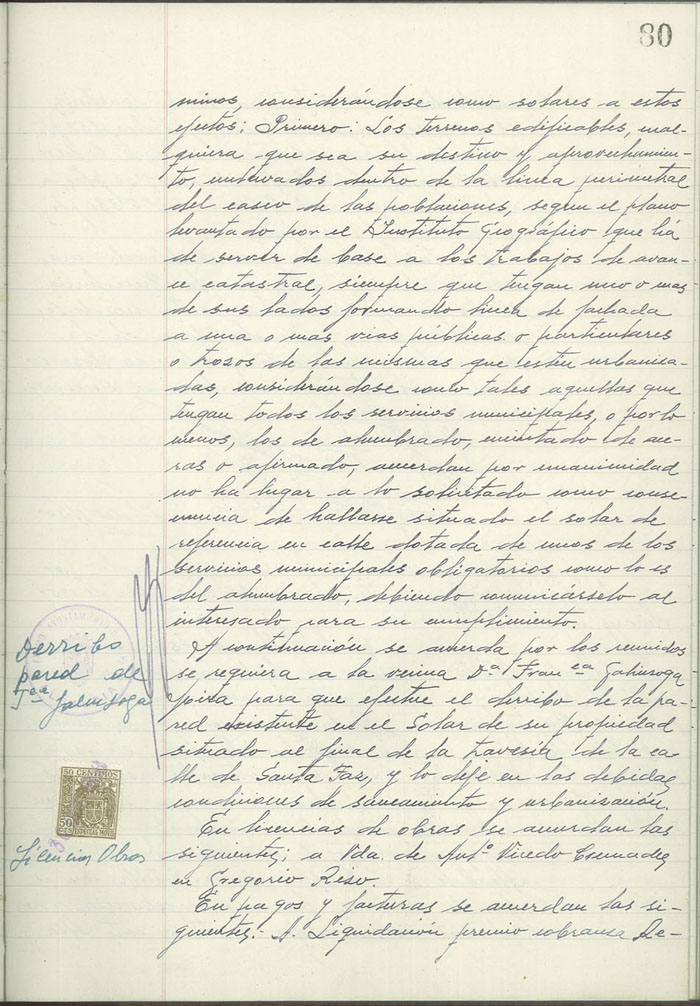 80
minos, considerándose como solares a estos
efectos; Primero: Los terrenos edificables, cual-
quiera que sea su destino y aprovechamien-
to, enclavados dentro de la linea perimetral
del casco de las poblaciones, segun el plano
levantado por el Instituto Geográfico que há
de server de base a los trabajos de avan-
ce catastral, siempre que tengan uno o mas
de sus lados formando linea de fachada
a una o mas vias públicas o particulares
o trozos de las mismas que esten urbaniza-
das, considerándose como tales aquellas que
tengan todos los servicios municipales, o por lo
menos, los de alumbrado, encintado de ace-
ras o afirmado, acuerdan por unanimidad
no ha lugar a lo solicitado como conse-
cuencia de hallarse situado el solar de
referencia en calle dotada de unos de los
servicios municipales obligatorios como lo es
del alumbrado, debiendo comunicárselo al
interesado para su cumplimiento.
Derribo
pared de
Galinsoga
A continuación se acuerda por los reunidos
se requiera a la vecina Dª Franᶜᵃ Galinsoga
para que efectue el derribo de la pa-
red existente en el Solar de su propiedad
situado al final de la travesia de la ca-
lle de Santa Faz, y lo deje en las debidas
condiciones de saneamiento y urbanización.
50 CENTIMOS
50
CTS
ESPECIAL MOVIL
Licencias Obras
En licencias de obras se acuerdan las
siguientes; a Vda. de Antº Vicedo
en Gregorio Rizo.
En pagos y facturas se acuerdan las si-
guientes:- A. Liquidación premio cobranza Re-